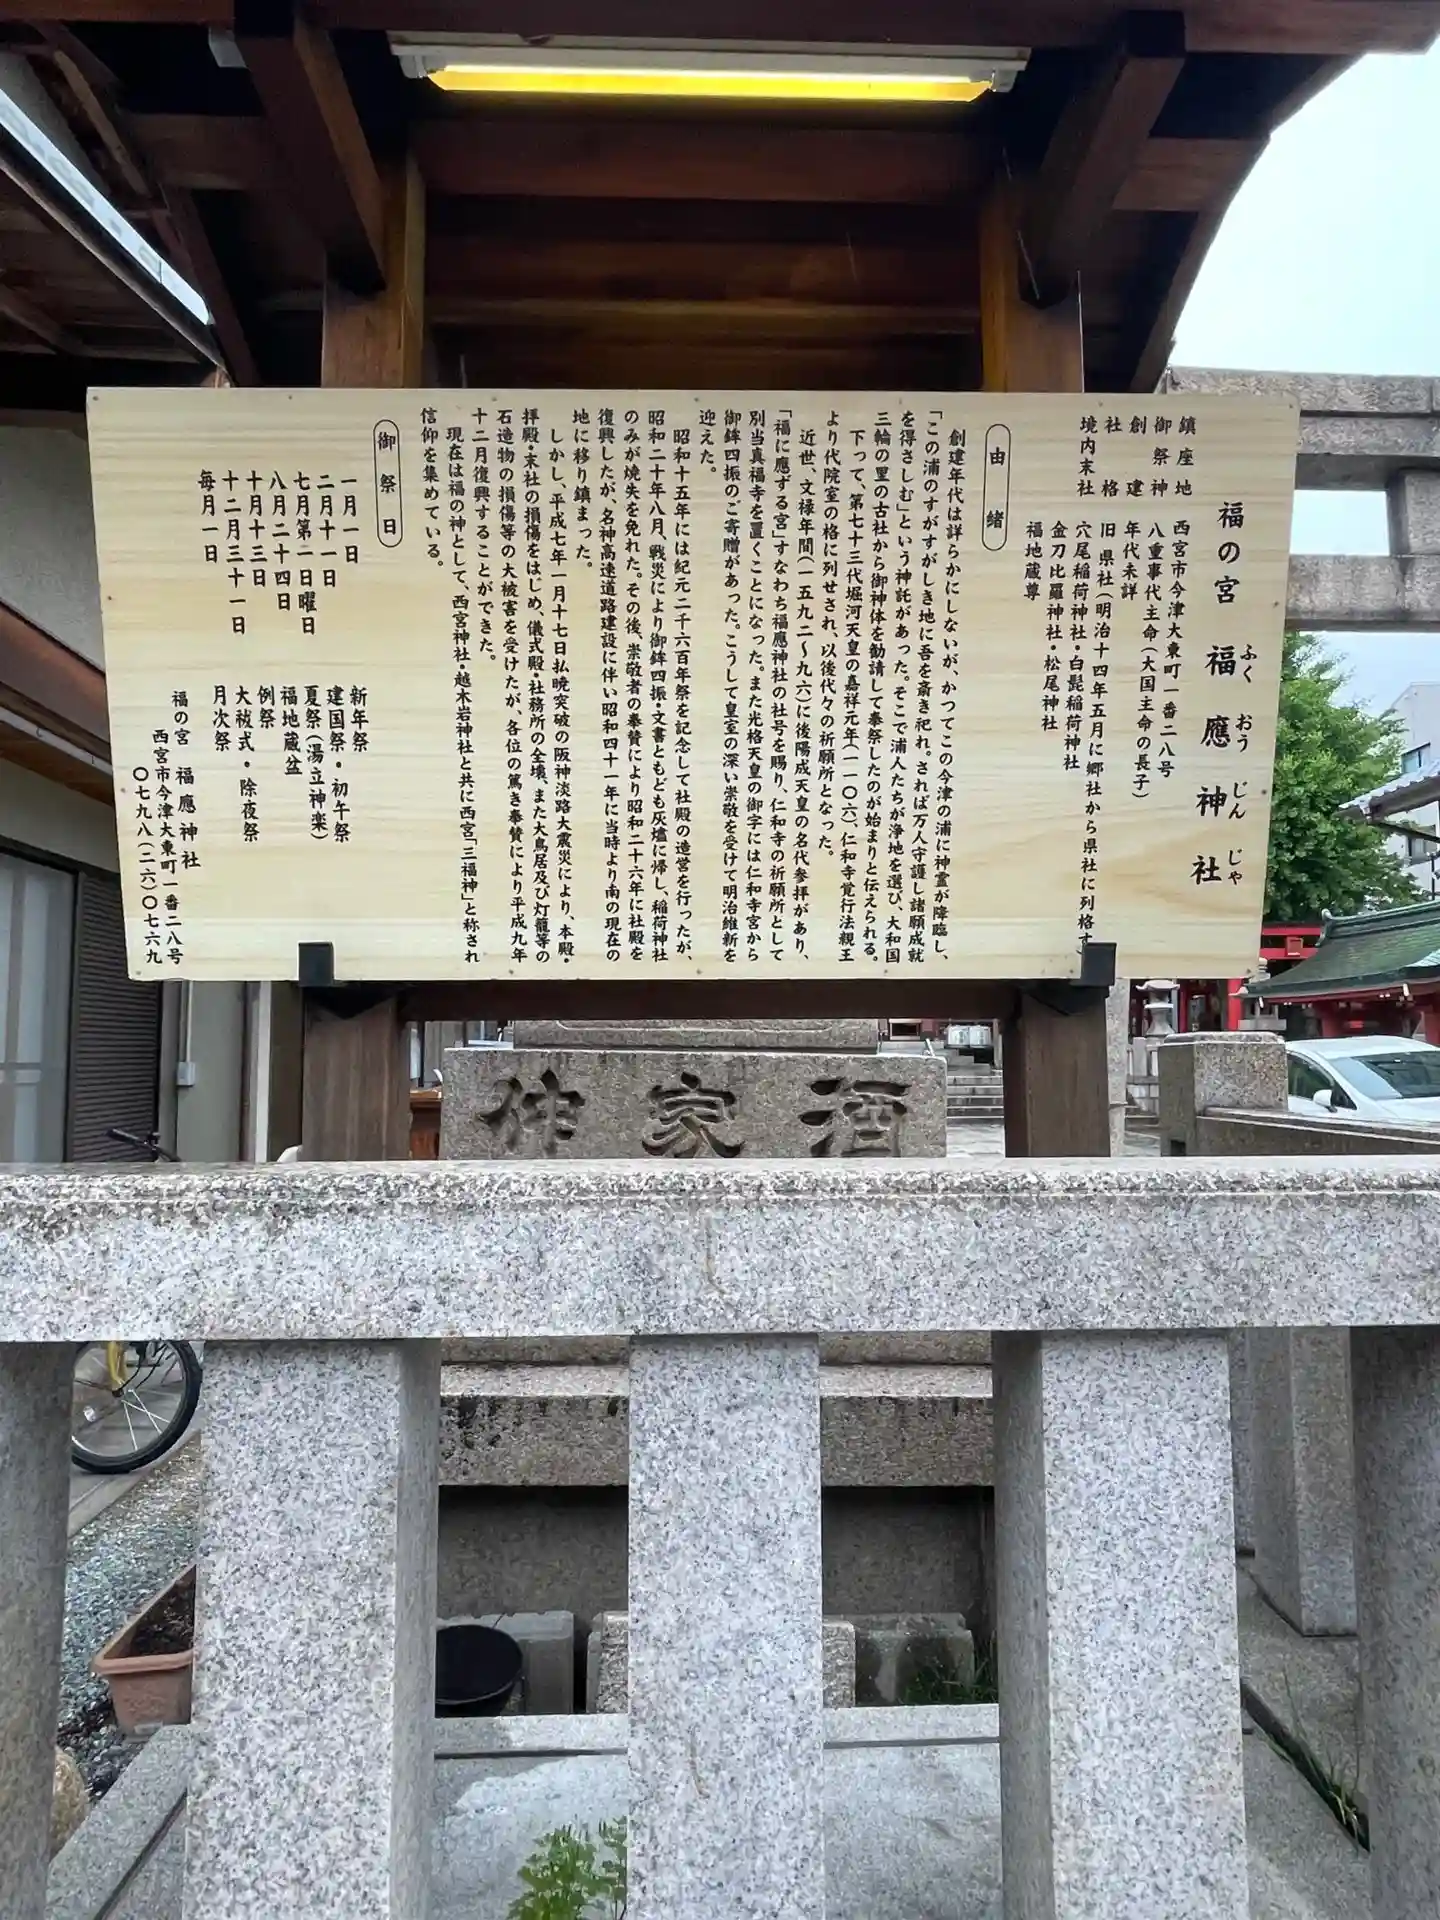 福の宮 福應神社
ふく おう じん じゃ
鎮座地 西宮市今津大東町一番二八号
御祭神 八重事代主命(大国主命の長子)
創建 年代未詳
社格 旧県社(明治十四年五月に郷社から県社に列格す)
境内末社 穴尾稲荷神社・白髭稲荷神社
金刀比羅神社・松尾神社
福地蔵尊
由緒
創建年代は詳らかにしないが、かつてこの今津の浦に神霊が降臨し、
「この浦のすがすがしき地に吾を斎き祀れ。されば万人守護し諸願成就
を得さしむ」という神託があった。そこで浦人たちが浄地を選び、大和国
三輪の里の古社から御神体を勧請して奉祭したのが始まりと伝えられる。
下って、第七十三代堀河天皇の嘉祥元年(一一〇六)、仁和寺覚行法親王
より代院室の格に列せされ、以後代々の祈願所となった。
近世、文禄年間(一五九二〜九六)に後陽成天皇の名代参拝があり、
「福に應ずる宮」すなわち福應神社の社号を賜り、仁和寺の祈願所として
別当真福寺を置くことになった。また光格天皇の御字には仁和寺宮から
御鉾四振のご寄贈があった。こうして皇室の深い崇敬を受けて明治維新を
迎えた。
昭和十五年には紀元二千六百年祭を記念して社殿の造営を行ったが、
昭和二十年八月、戦災により御鉾四振・文書ともども灰燼に帰し、稲荷神社
のみが焼失を免れた。その後、崇敬者の奉賛により昭和二十六年に社殿を
復興したが、名神高速道路建設に伴い昭和四十一年に当時より南の現在の
地に移り鎮まった。
しかし、平成七年一月十七日払暁突破の阪神淡路大震災により、本殿・
拝殿・末社の損傷をはじめ、儀式殿・社務所の全壊、また大鳥居及び灯籠等の
石造物の損傷等の大被害を受けたが、各位の篤き奉賛により平成九年
十二月復興することができた。
現在は福の神として、西宮神社・越木岩神社と共に西宮「三福神」と称され
信仰を集めている。
御祭日
一月一日 新年祭
二月十一日 建国祭・初午祭
七月第二日曜日 夏祭(湯立神楽)
八月二十四日 福地蔵盆
十月十三日 例祭
十二月三十一日 大祓式・除夜祭
毎月一日 月次祭
福の宮 福應神社
西宮市今津大東町一番二八号
〇七九八(二六)〇七六九
酒家伴